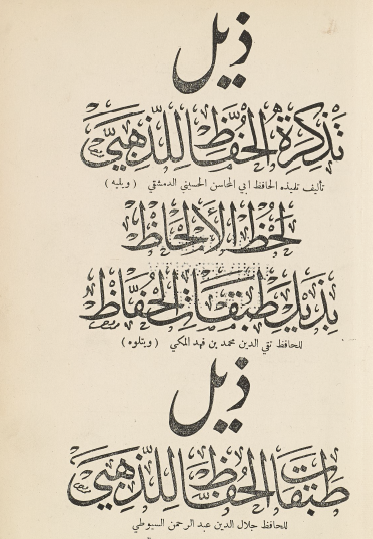 ذيل
تَذكِرةُ الحُفَّاظ لِلذَّهبيّ
تأليف تلميذه الحافظ ابي المحاسن الحسيني الدمشقي ( ويليه )
لحظ الألحاظ
بذيل طبقات الحفاظ
للحافظ تقي الدين محمد بن فهد المكي ( ويتلوه )
ذيل
طبقات الحُفّاظ لِلذَّهبيّ
للحافظ جلال الدين عبد الرحمن السيوطي